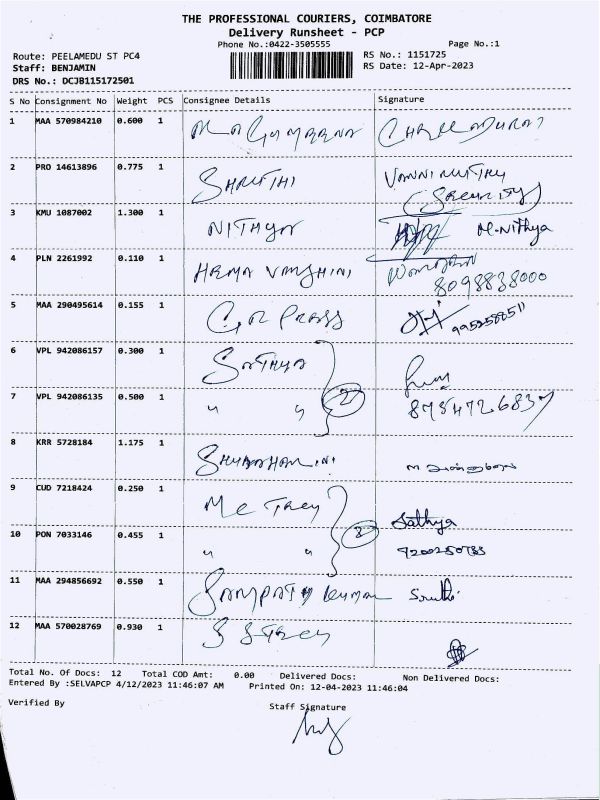 THE PROFESSIONAL COURIERS, COIMBATORE
Delivery Runsheet - PCP
Phone No.:0422-3505555 Page No.:1
Route: PEELAMEDU ST PC4 RS No.: 1151725
Staff: BENJAMIN RS Date: 12-Apr-2023
DRS No.: DCJB115172501
S No Consignment No Weight PCS Consignee Details Signature
1 MAA 570984210 0.600 1
2 PRO 14613896 0.775 1 SHRUTHI VANNIMUTHU
(SECURITY)
3 KMU 1087002 1.300 1 NITHYA M.Nithya
4 PLN 2261992 0.110 1 HEMA VARSHINI
8098838000
5 MAA 290495614 0.155 1 G R PRESS
6 VPL 942086157 0.300 1 SATHYA
7 VPL 942086135 0.500 1 " " 2 8754726837
8 KRR 5728184 1.175 1
9 CUD 7218424 0.250 1 Sathya
10 PON 7033146 0.455 1 " " 2
11 MAA 294856692 0.550 1 SAMPATH KUMAR
12 MAA 570028769 0.930 1
Total No. Of Docs: 12 Total COD Amt: 0.00 Delivered Docs: Non Delivered Docs:
Entered By :SELVAPCP 4/12/2023 11:46:07 AM Printed On: 12-04-2023 11:46:04
Verified By Staff Signature